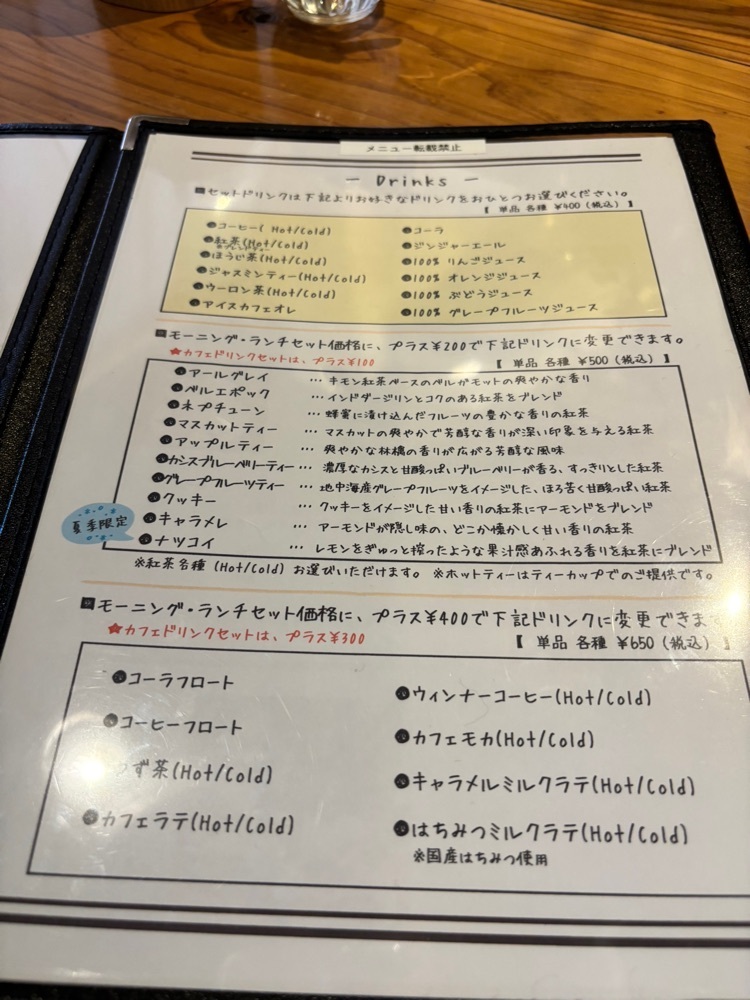 メニュー転載禁止
− Drinks −
■セットドリンクは下記よりお好きなドリンクをおひとつお選びください。
【 単品 各種 ¥400(税込) 】
●コーヒー( Hot/Cold)
●紅茶(Hot/Cold)
●ほうじ茶(Hot/Cold)
●ジャスミンティー(Hot/Cold)
●ウーロン茶(Hot/Cold)
●アイスカフェオレ
●コーラ
●ジンジャーエール
●100% りんごジュース
●100% オレンジジュース
●100% ぶどうジュース
●100% グレープフルーツジュース
■モーニング・ランチセット価格に、プラス¥200で下記ドリンクに変更できます。
★カフェドリンクセットは、プラス¥100
【 単品 各種 ¥500(税込) 】
●アールグレイ … キモン紅茶ベースのベルガモットの爽やかな香り
●ベルエポック … インドダージリンとコクのある紅茶をブレンド
●ネプチューン … 蜂蜜に漬け込んだフルーツの豊かな香りの紅茶
●マスカットティー … マスカットの爽やかで芳醇な香りが深い印象を与える紅茶
●アップルティー … 爽やかな林檎の香りが広がる芳醇な風味
●カシスブルーベリーティー… 濃厚なカシスと甘酸っぱいブルーベリーが香る、すっきりとした紅茶
●グレープフルーツティー … 地中海産グレープフルーツをイメージした、ほろ苦く甘酸っぱい紅茶
●クッキー … クッキーをイメージした甘い香りの紅茶にアーモンドをブレンド
●キャラメレ … アーモンドが隠し味の、どこか懐かしく甘い香りの紅茶
夏季限定
●ナツコイ … レモンをぎゅっと搾ったような果汁感あふれる香りを紅茶にブレンド
※紅茶各種 (Hot/Cold) お選びいただけます。 ※ホットティーはティーカップでのご提供です。
■モーニング・ランチセット価格に、プラス¥400で下記ドリンクに変更できます
★カフェドリンクセットは、プラス¥300
【 単品 各種 ¥650(税込) 】
●コーラフロート
●コーヒーフロート
ず茶(Hot/Cold)
●カフェラテ(Hot/Cold)
●ウィンナーコーヒー(Hot/Cold)
●カフェモカ(Hot/Cold)
●キャラメルミルクラテ(Hot/Cold)
●はちみつミルクラテ(Hot/Cold)
※国産はちみつ使用